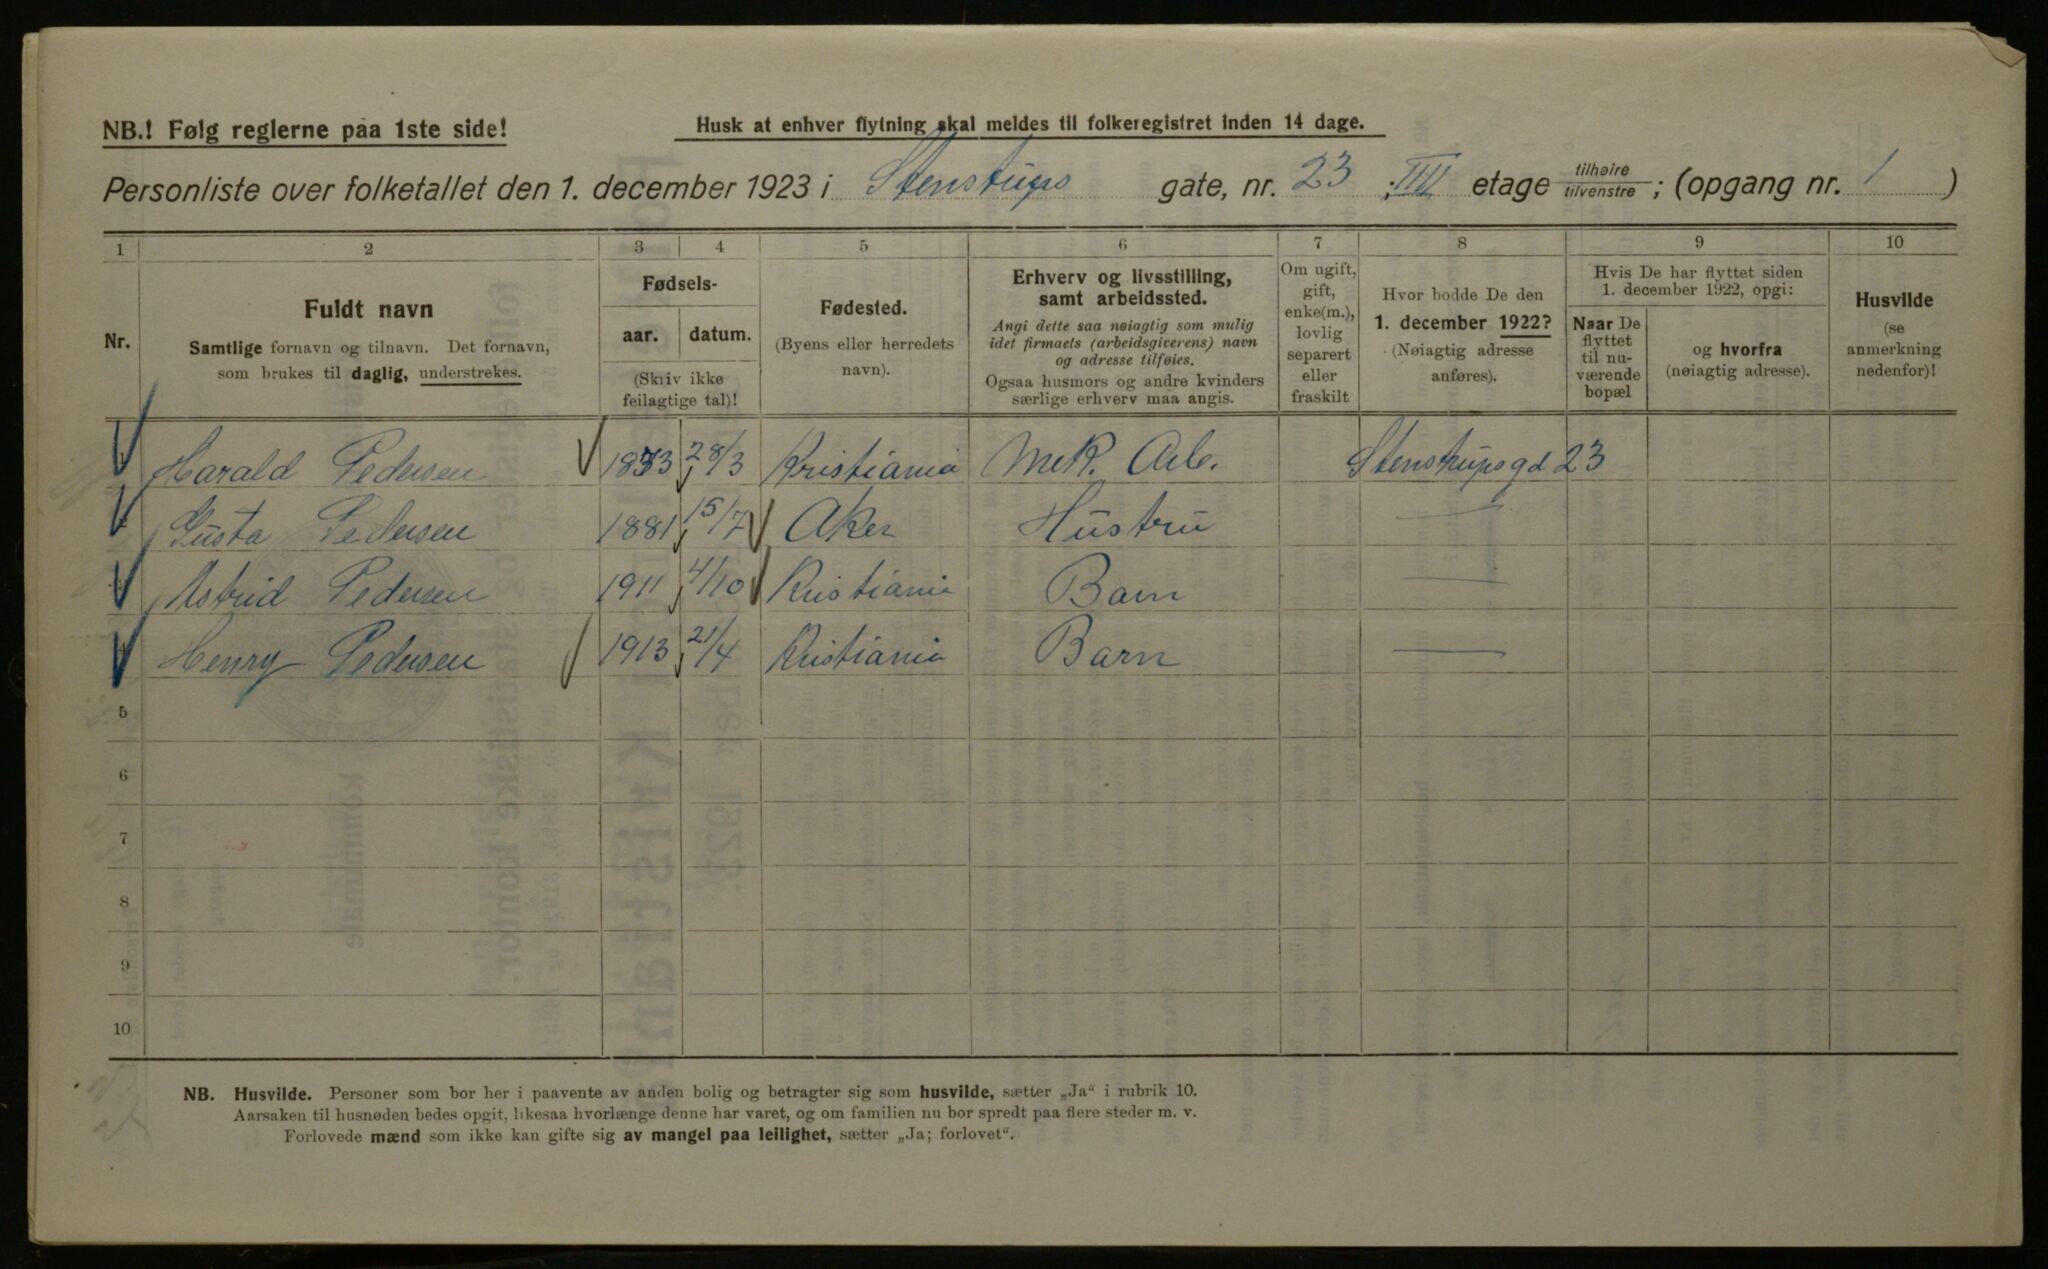 NB.! Følg reglerne paa 1ste side!
Husk at enhver flytning skal meldes til folkeregistret inden 14 dage.
Personliste over folketallet den 1. december 1923 i Stenstrups gate, nr. 23 ; IIII etage tilhøire/tilvenstre ; (opgang nr. 1 )
1 2 3 4 5 6 7 8 9 10
Nr.
Fuldt navn
Samtlige fornavn og tilnavn. Det fornavn,
som brukes til daglig, understrekes.
Fødsels-
aar. datum.
(Skriv ikke
feilagtige tal)!
Fødested.
(Byens eller herredets
navn).
Erhverv og livsstilling,
samt arbeidssted.
Angi dette saa nøiagtig som mulig
idet firmaets (arbeidsgiverens) navn
og adresse tilføies.
Ogsaa husmors og andre kvinders
særlige erhverv maa angis.
Om ugift,
gift,
enke(m.),
lovlig
separert
eller
fraskilt
Hvor bodde De den
1. december 1922?
(Nøiagtig adresse
anføres).
Hvis De har flyttet siden
1. december 1922, opgi:
Naar De
flyttet
til nu-
værende
bopæl
og hvorfra
(nøiagtig adresse).
Husvilde
(se
anmerkning
nedenfor)!
Harald Pedersen 1873 28/3 Kristiania Mek. Arb. Stenstrupsgd 23
Gusta Pedersen 1881 15/7 Aker Hustru —
Astrid Pedersen 1911 4/10 Kristiania Barn —
Henry Pedersen 1913 21/4 Kristiania Barn —
5
6
7
8
9
10
NB. Husvilde. Personer som bor her i paavente av anden bolig og betragter sig som husvilde, sætter „Ja“ i rubrik 10.
Aarsaken til husnøden bedes opgit, likesaa hvorlænge denne har varet, og om familien nu bor spredt paa flere steder m. v.
Forlovede mænd som ikke kan gifte sig av mangel paa leilighet, sætter „Ja; forlovet“.